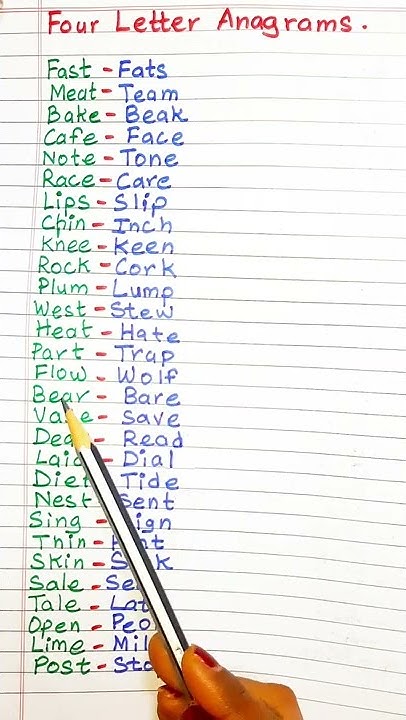 Four Letter Anagrams.
Fast - Fats
Meat - Team
Bake - Beak
Cafe - Face
Note - Tone
Race - Care
Lips - Slip
Chin - Inch
Knee - Keen
Rock - Cork
Plum - Lump
West - Stew
Heat - Hate
Part - Trap
Flow - Wolf
Bear - Bare
Vase - Save
- Read
Laid - Dial
Diet - Tide
Nest - Sent
Sing -
Thin -
Skin -
Sale -
Tale -
Open -
Lime -
Post -